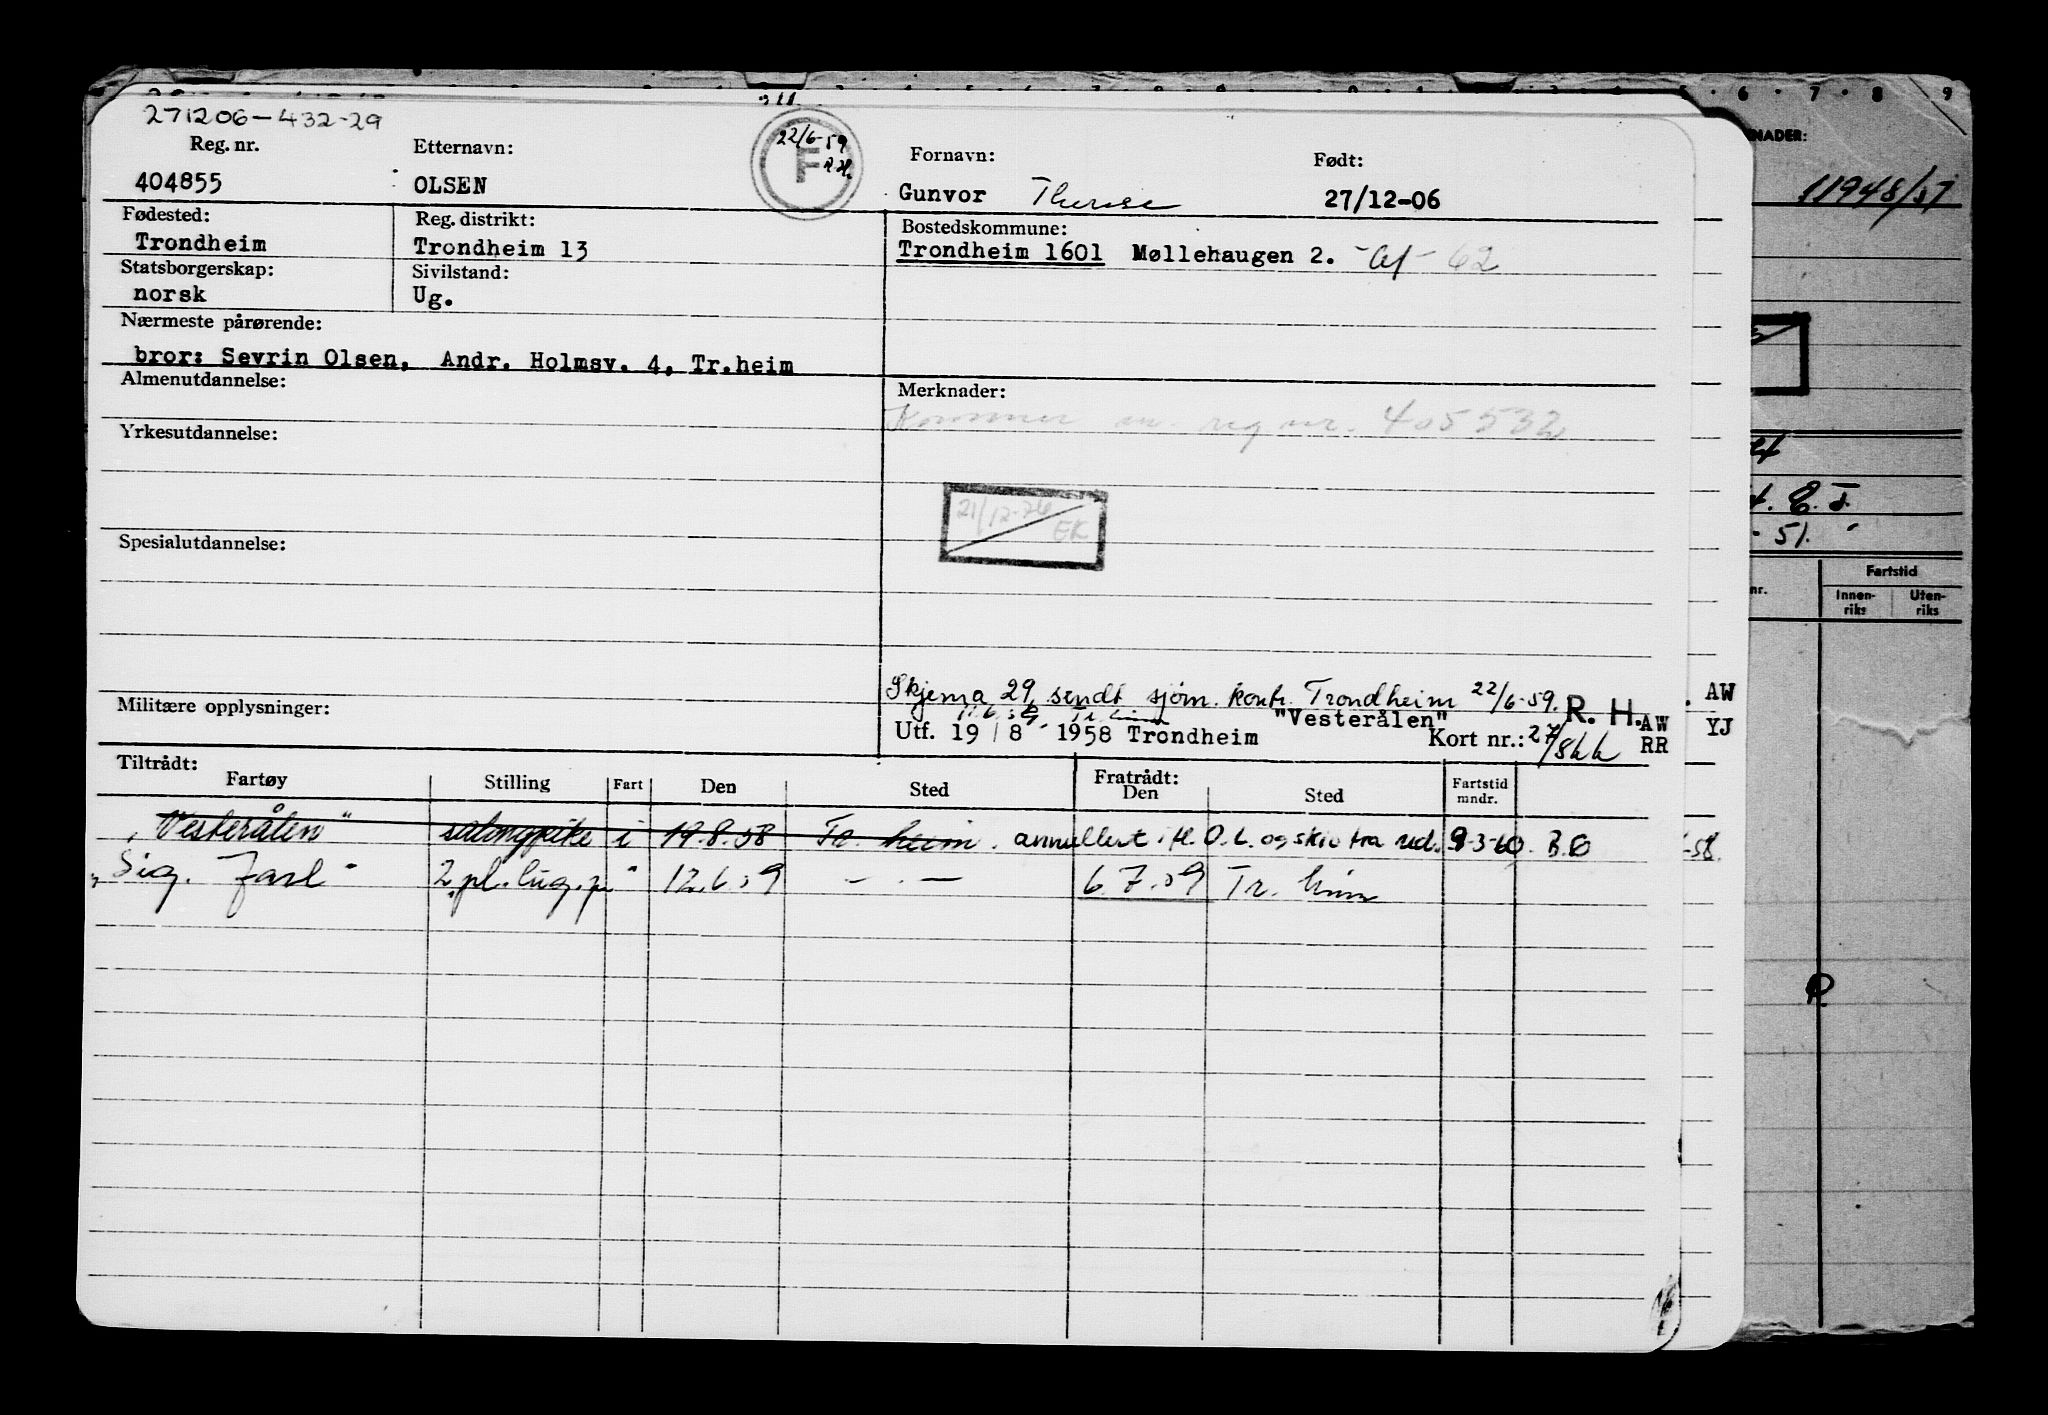 271206-432-29
Reg. nr. Etternavn: Fornavn: Født:
22/6-59
F R.H.
404855 OLSEN Gunvor Therese 27/12-06
Fødested: Reg. distrikt: Bostedskommune:
Trondheim Trondheim 13 Trondheim 1601 Møllehaugen 2. - 62
Statsborgerskap: Sivilstand:
norsk Ug.
Nærmeste pårørende:
bror: Sevrin Olsen, Andr. Holmsv. 4, Tr.heim
Almenutdannelse: Merknader:
Kommer m. reg nr. 405532
Yrkesutdannelse:
21/12-76
EK
Spesialutdannelse:
Skjema 29 sendt sjøm. kontr. Trondheim 22/6-59. R. H.
Militære opplysninger:
"Vesterålen" AW
Utf. 19/8 - 1958 Trondheim Kort nr.: 27/ RR
Tiltrådt: Fratrådt:
Fartøy Stilling Fart Den Sted Den Sted Fartstid mndr.
"Vesterålen" salongpike i 19.8.58 Tr. heim. annullert ifl. O.L. og skiv fra red. 9-3-60. B.O
"Sig. Jarl" 2. pl. lug.p. " 12.6.59 — . — 6.7.59 Tr. heim
AW
YJ
-58.
6 7 8 9
NADER:
11948/57
E. J.
- 51.
nr. Fartstid
Innen-
riks Uten-
riks
R